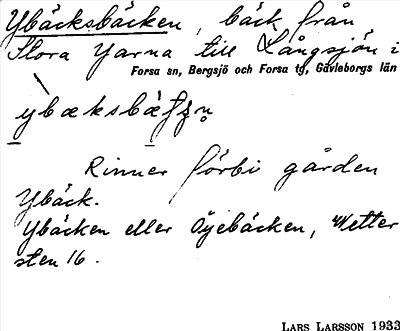 Ybäcksbäcken, bäck från
Stora Yarna till Långsjön i
Forsa sn, Bergsjö och Forsa tg, Gävleborgs län
Rinner förbi gården
Ybäck.
Ybäcken eller Öyebäcken, Wetter
sten 16.
LARS LARSSON 1933